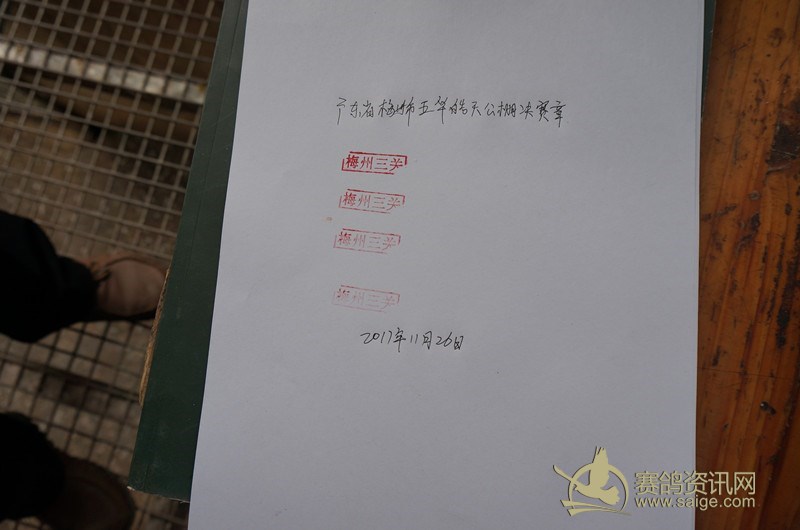 广东省梅州市五华皓天公棚决赛章
梅州三关
梅州三关
梅州三关
梅州三关
2017年11月26日
赛鸽资讯网
www.saige.com